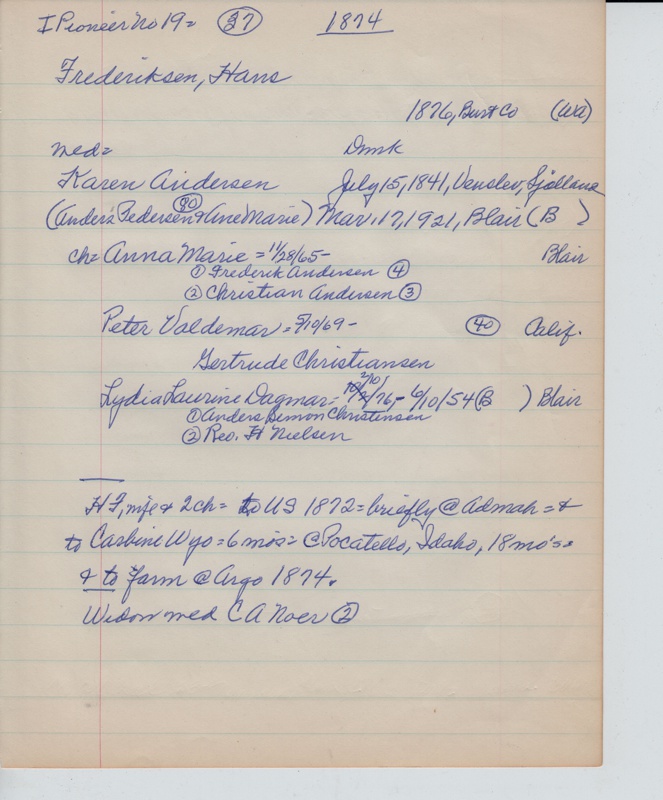 I Pioneer No 19 = (37) 1874
Frederiksen, Hans
1876, Burt Co (Wa)
med = Dmrk
Karen Andersen July 15, 1841, Venslev, Sjølland
(Anders Pedersen & Ane Marie) (80) Mar. 17, 1921, Blair (B )
ch = Anna Marie = 11/28/65 - Blair
① Frederik Andersen ④
② Christian Andersen ③
Peter Valdemar = 5/10/69 - (40) Calif.
Gertrude Christiansen
2/10
Lydia Laurine Dagmar = /76, - 6/10/54 (B ) Blair
① Anders Simon Christensen
② Rev. H Nielsen
H F, wife & 2 ch = to US 1872 = briefly @ Admah = &
to Carbine Wyo = 6 mos = @ Pocatello, Idaho, 18 mo's =
& to farm @ Argo 1874.
Widow med C A Noer ②